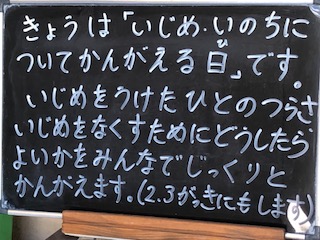 きょうは「いじめ・いのちに
ついてかんがえる日」です。
び
いじめをうけたひとのつらさ
いじめをなくすためにどうしたら
よいかをみんなでじっくりと
かんがえます。(2.3がっきにもします)